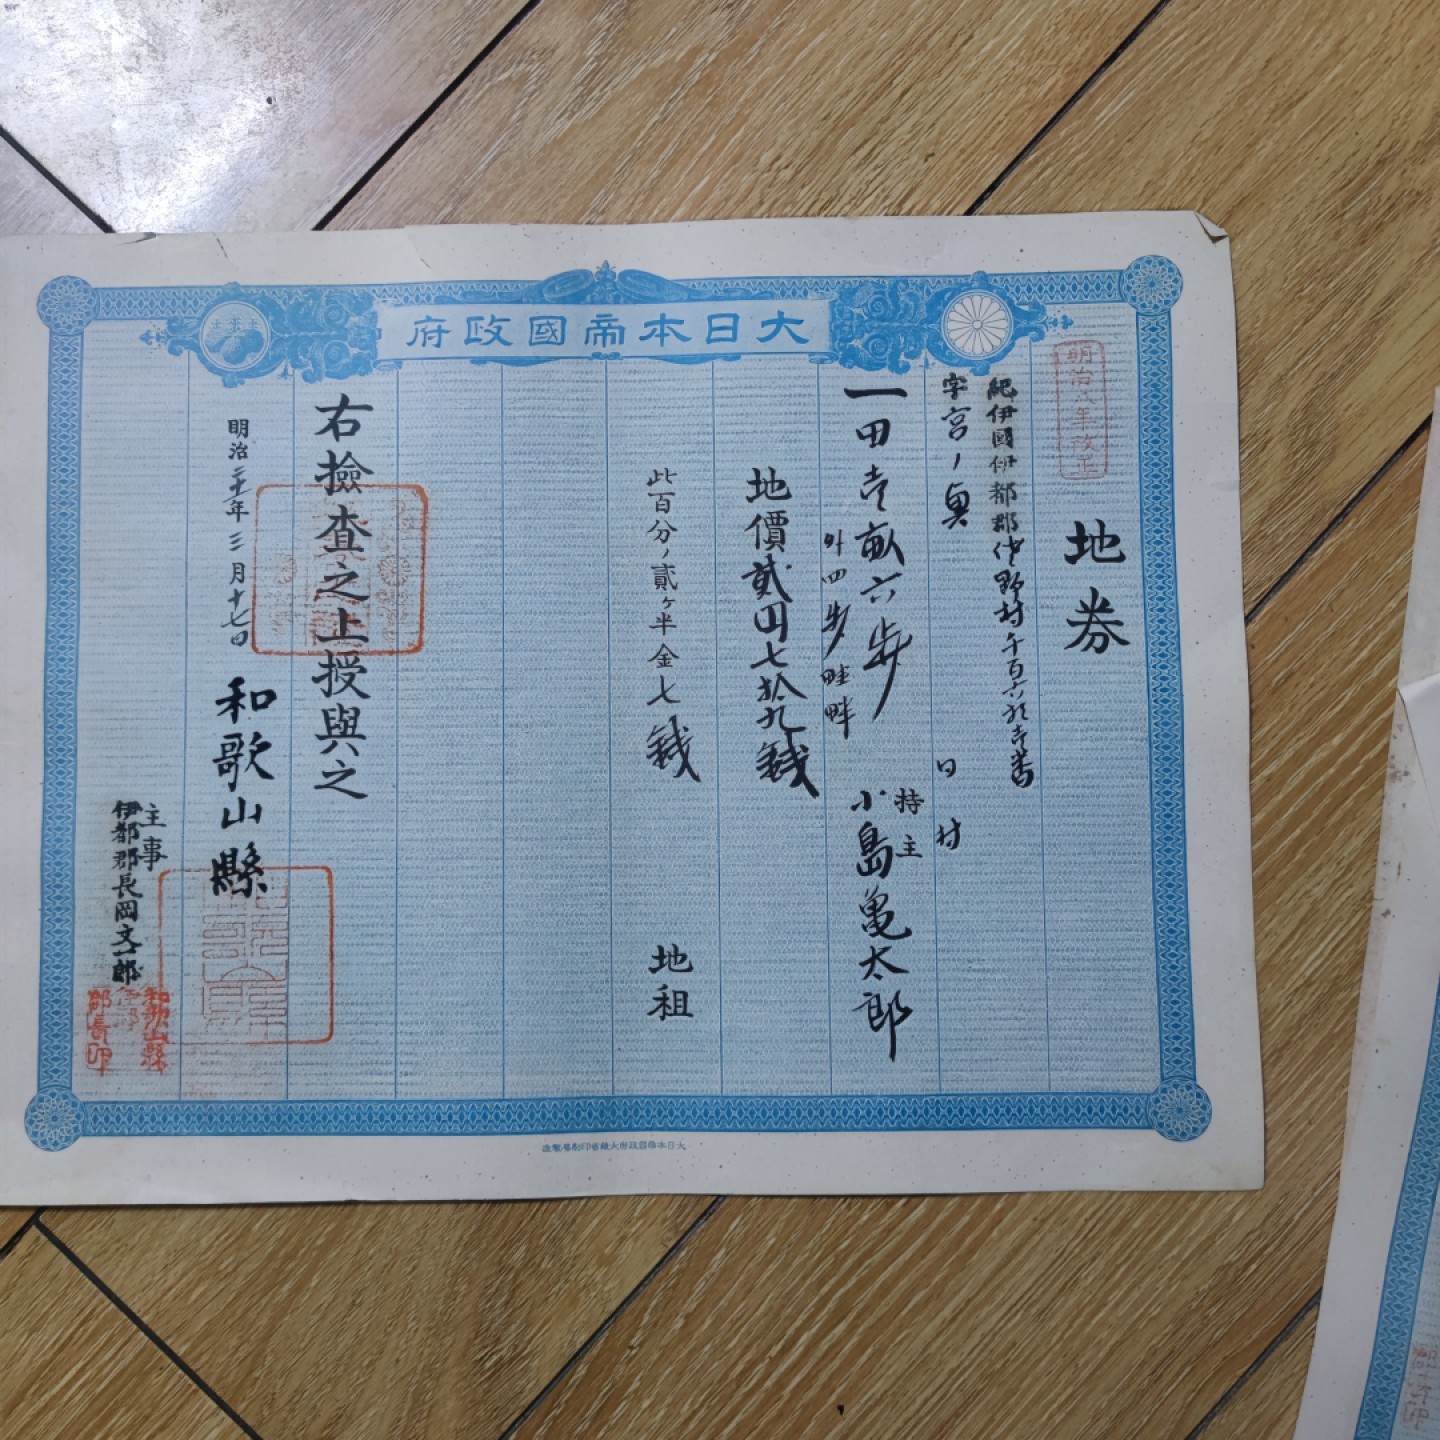 大日本帝國政府
明治八年改正
地券
紀伊國伊都郡伏野村千百六拾壱番
字宮ノ奥
日村
一田壱畝六歩
外四歩畦畔
持主
小島亀太郎
地價貳円七拾九錢
此百分ノ貳ヶ半金七錢
地租
右檢査之上授與之
明治二十一年三月十七日
和歌山縣
主事
伊都郡長岡文一郎
和歌山縣
伊都
郡長印
大日本帝國政府大藏省印刷局製造